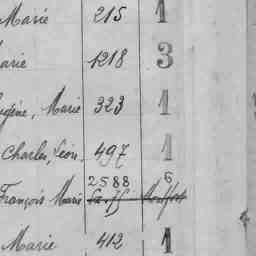 Marie 215 1
arie 1218 3
ugène, Marie 323 1
Charles, Léon, 497 1
2588 6
François Marie Montfort
Marie 412 1